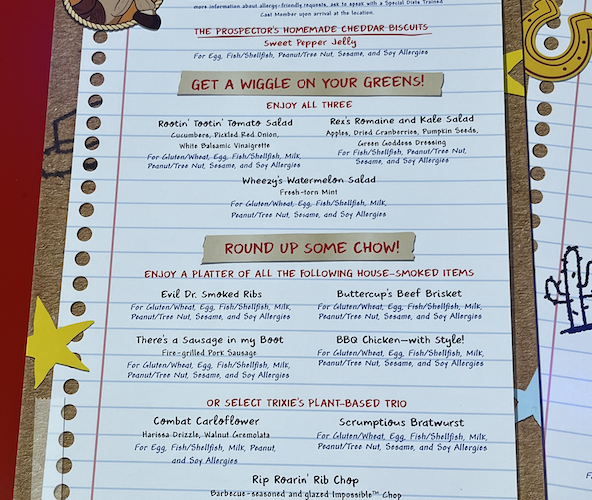 more information about allergy-friendly requests, ask to speak with a Special Diets Trained
Cast Member upon arrival at the location.
THE PROSPECTOR'S HOMEMADE CHEDDAR BISCUITS
Sweet Pepper Jelly
For Egg, Fish/Shellfish, Peanut/Tree Nut, Sesame, and Soy Allergies
GET A WIGGLE ON YOUR GREENS!
ENJOY ALL THREE
Rootin' Tootin' Tomato Salad
Cucumbers, Pickled Red Onion,
White Balsamic Vinaigrette
For Gluten/Wheat, Egg, Fish/Shellfish, Milk,
Peanut/Tree Nut, Sesame, and Soy Allergies
Rex's Romaine and Kale Salad
Apples, Dried Cranberries, Pumpkin Seeds,
Green Goddess Dressing
For Fish/Shellfish, Peanut/Tree Nut,
Sesame, and Soy Allergies
Wheezy's Watermelon Salad
Fresh-torn Mint
For Gluten/Wheat, Egg, Fish/Shellfish, Milk,
Peanut/Tree Nut, Sesame, and Soy Allergies
ROUND UP SOME CHOW!
ENJOY A PLATTER OF ALL THE FOLLOWING HOUSE-SMOKED ITEMS
Evil Dr. Smoked Ribs
For Gluten/Wheat, Egg, Fish/Shellfish, Milk,
Peanut/Tree Nut, Sesame, and Soy Allergies
Buttercup's Beef Brisket
For Gluten/Wheat, Egg, Fish/Shellfish, Milk,
Peanut/Tree Nut, Sesame, and Soy Allergies
There's a Sausage in my Boot
Fire-grilled Pork Sausage
For Gluten/Wheat, Egg, Fish/Shellfish, Milk,
Peanut/Tree Nut, Sesame, and Soy Allergies
BBQ Chicken—with Style!
For Gluten/Wheat, Egg, Fish/Shellfish, Milk,
Peanut/Tree Nut, Sesame, and Soy Allergies
OR SELECT TRIXIE'S PLANT-BASED TRIO
Combat Carloflower
Harissa Drizzle, Walnut Gremolata
For Egg, Fish/Shellfish, Milk, Peanut,
and Soy Allergies
Scrumptious Bratwurst
For Gluten/Wheat, Egg, Fish/Shellfish, Milk,
Peanut/Tree Nut, Sesame, and Soy Allergies
Rip Roarin' Rib Chop
Barbecue-seasoned and glazed Impossible™ Chop